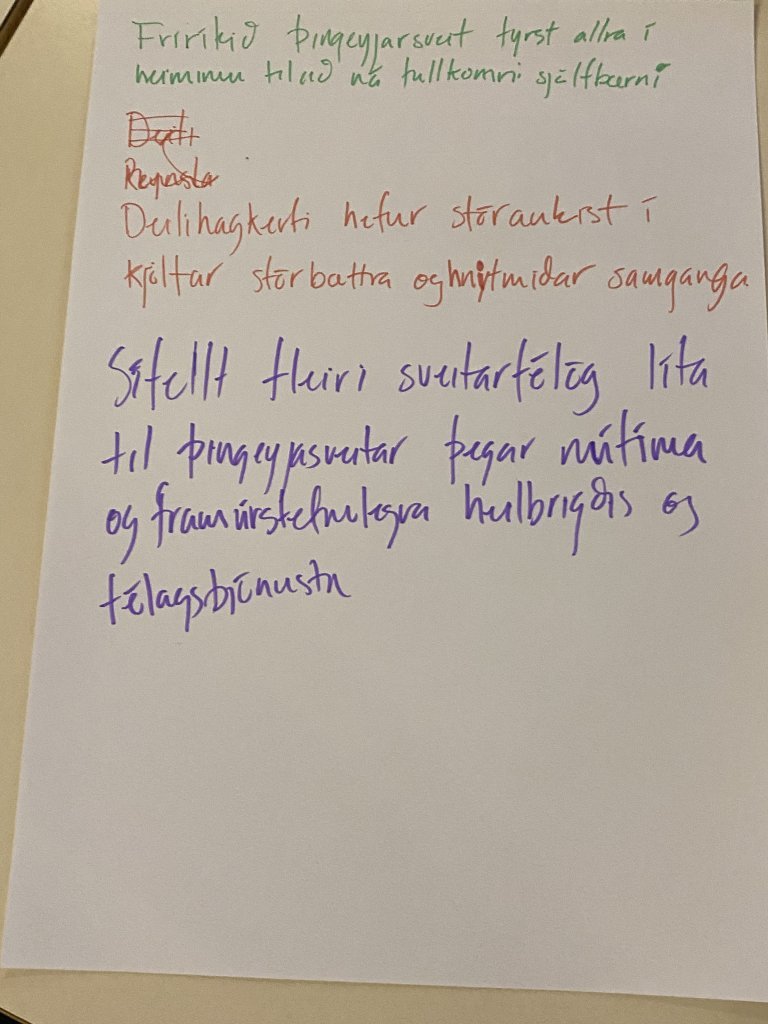 Fríríkið Þingeyjarsveit fyrst allra í
heiminum til að ná fullkomri sjálfbærni
Deilihagkerfi hefur stóraukist í
kjölfar stórbættra og hnitmiðar samganga
Sífellt fleiri sveitarfélög líta
til Þingeyjasveitar þegar nútíma
og framúrstefnulegra heilbrigðis og
félagsþjónusta